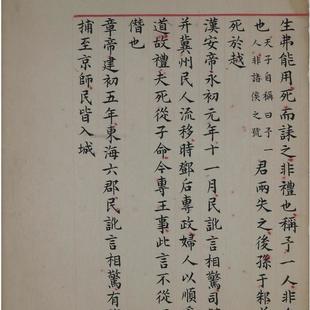 生弗能用死而誄之非禮也稱予一人非
也天子自稱曰予一人非諸侯之號君兩失之後孫于邾
死於越
漢安帝永初元年十一月民訛言相驚司
并冀州民人流移時鄧后專政婦人以順
道故禮夫死從子命今專王事此言不從
僭也
章帝建初五年東海六郡民訛言相驚有
捕至京師民皆入城